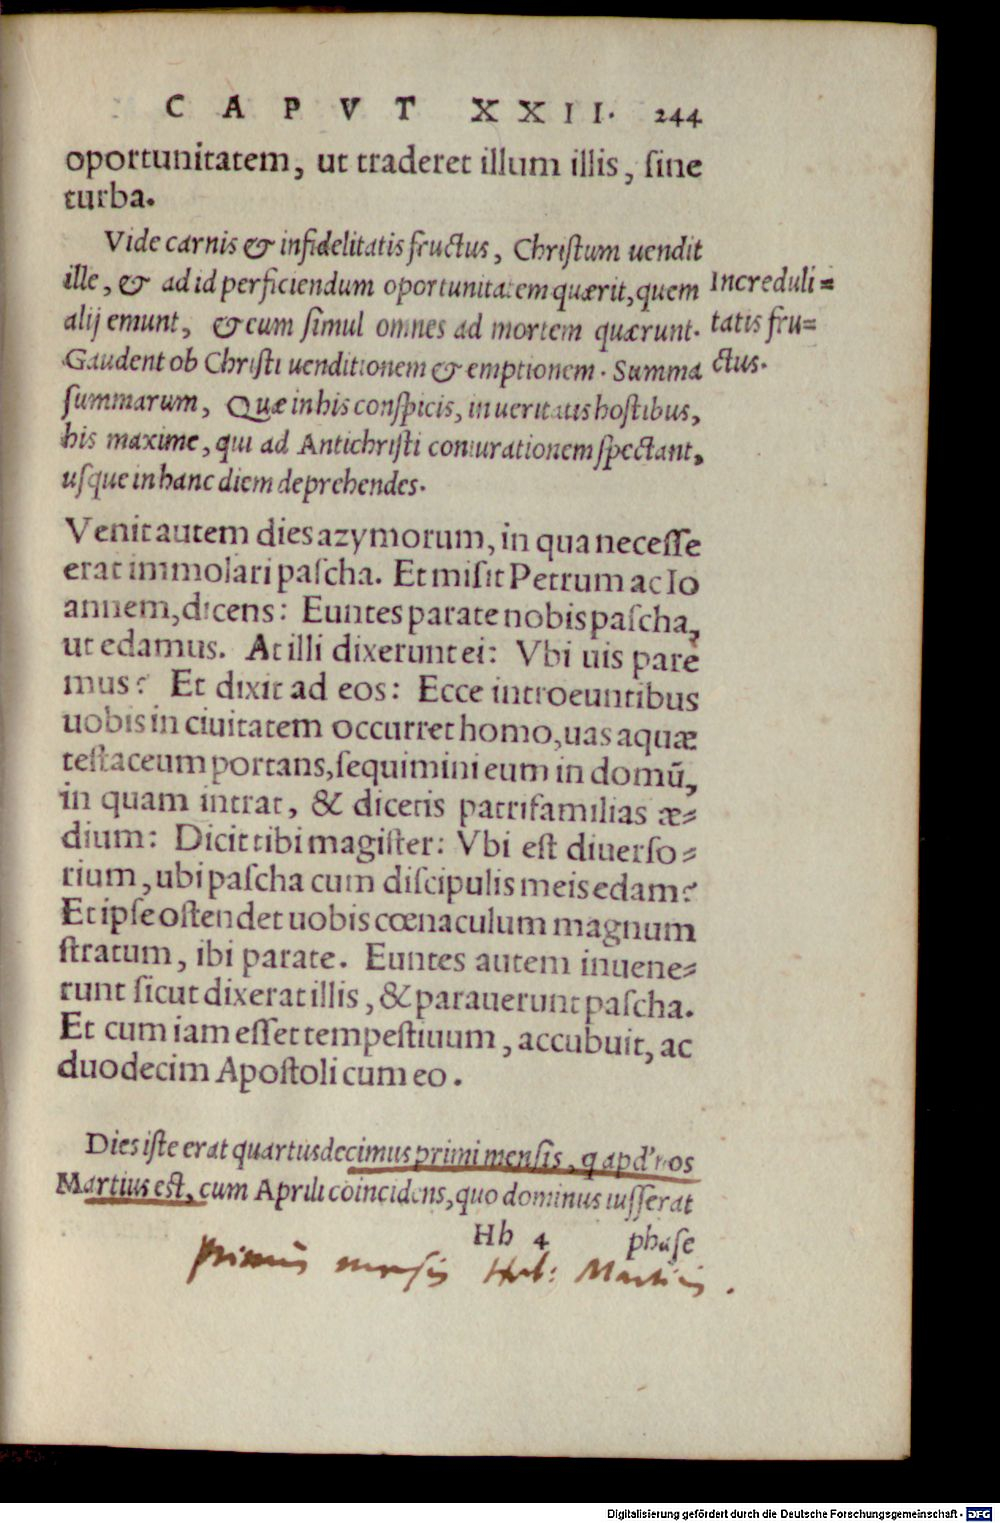 CAPVT XXII. 244
oportunitatem, ut traderet illum illis, sine
turba.
Vide carnis & infidelitatis fructus, Christum uendit
ille, & ad id perficiendum oportunitatem quærit, quem
alij emunt, & cum simul omnes ad mortem quærunt.
Gaudent ob Christi uenditionem & emptionem. Summa
summarum, Quæ in his conspicis, in ueritatis hostibus,
his maxime, qui ad Antichristi coniurationem spectant,
usque in hanc diem deprehendes.
Increduli=
tatis fru=
ctus.
Venit autem dies azymorum, in qua necesse
erat immolari pascha. Et misit Petrum ac Io
annem, dicens: Euntes parate nobis pascha,
ut edamus. At illi dixerunt ei: Vbi uis pare
mus? Et dixit ad eos: Ecce introeuntibus
uobis in ciuitatem occurret homo, uas aquæ
testaceum portans, sequimini eum in domũ,
in quam intrat, & dicetis patrifamilias æ=
dium: Dicit tibi magister: Vbi est diuerso=
rium, ubi pascha cum discipulis meis edam?
Et ipse ostendet uobis cœnaculum magnum
stratum, ibi parate. Euntes autem inuene=
runt sicut dixerat illis, & parauerunt pascha.
Et cum iam esset tempestiuum, accubuit, ac
duodecim Apostoli cum eo.
Dies iste erat quartusdecimus primi mensis, q apd' nos
Martius est, cum Aprili coincidens, quo dominus iusserat
Hh 4 phase
primus mensis Heb: Martius.
Digitalisierung gefördert durch die Deutsche Forschungsgemeinschaft - DFG